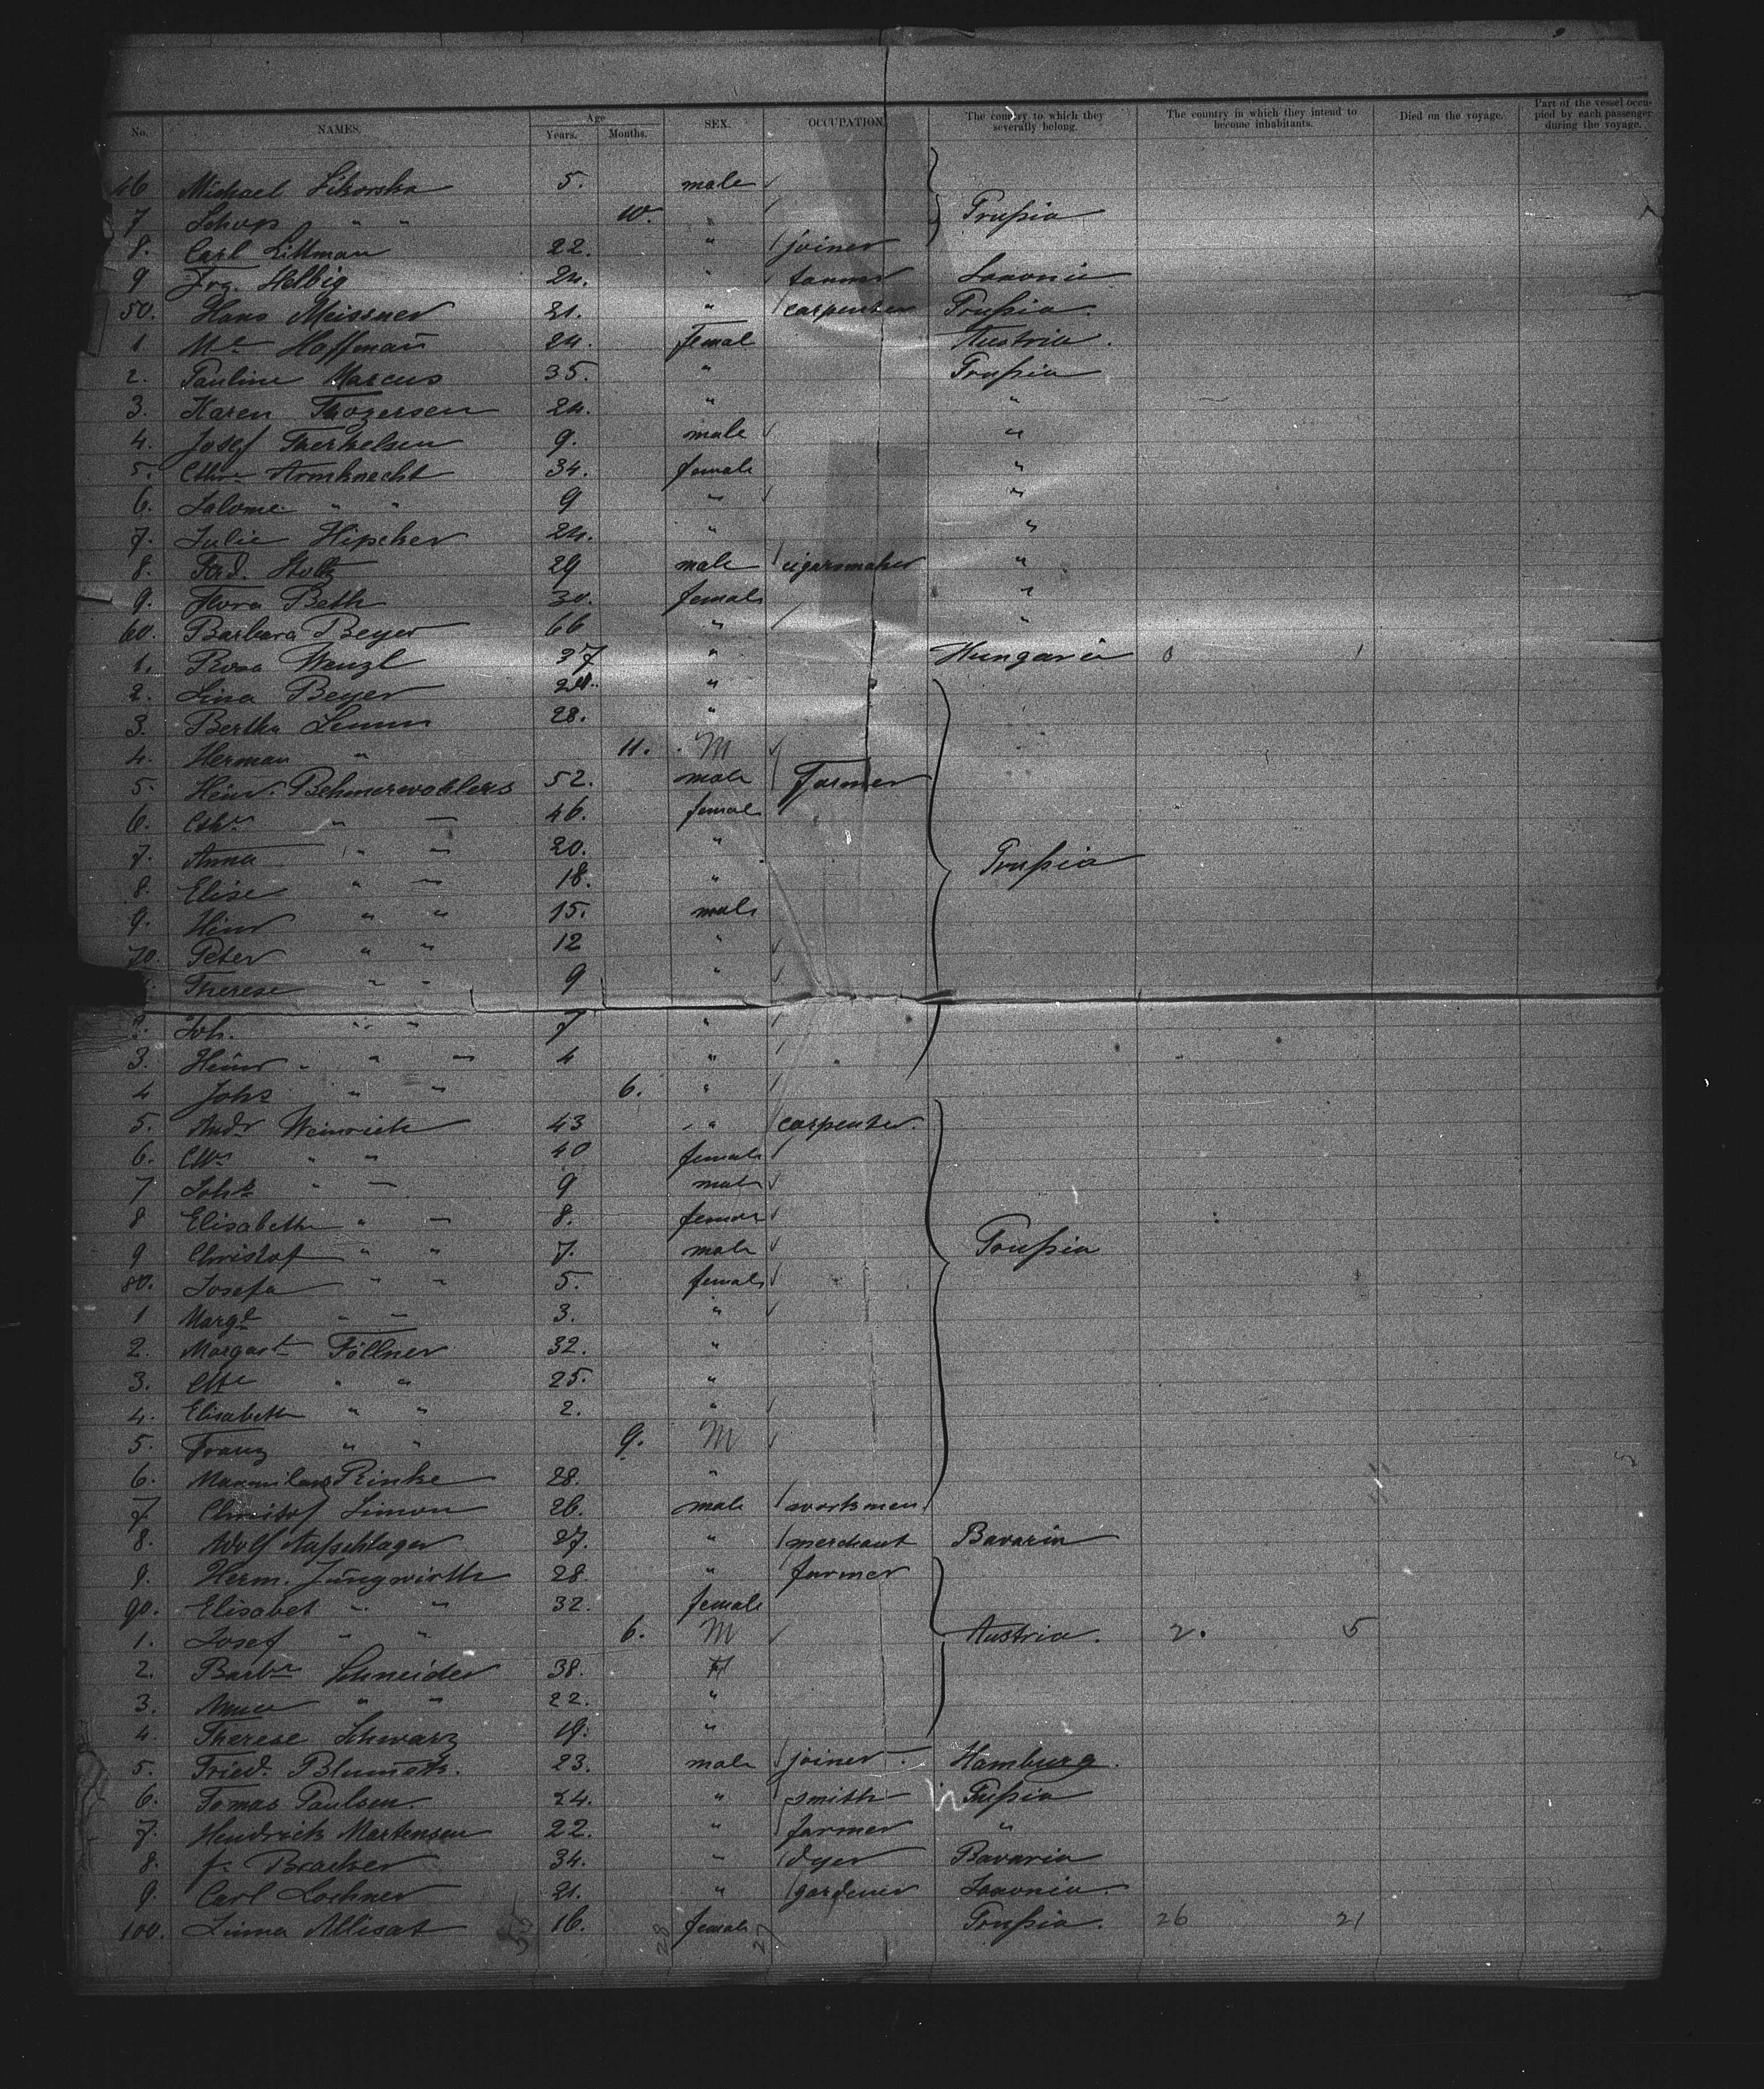 No. NAMES. Age Years. Months. SEX. OCCUPATION The country to which they severally belong. The country in which they intend to become inhabitants. Died on the voyage. Part of the vessel occupied by each passenger during the voyage.
46 Michael Sikorska 5. male
7 " " 10. " Prußia
8. Carl Littman 22. " joiner
9 Frz. Helbig 24. " tanner Saxonia
50. Hans Meissner 21. " carpenter Prußia.
1 Hoffman 24. femal Austria.
2. Pauline Marcus 35. " Prußia
3. Karen Thogersen 24. " "
4. Josef Therkelsen 9. male "
5. Armknecht 34. female "
6. Salome " " 9 " "
7. Julie Hipscher 24. " "
8. Ferd. Stoltz 29 male cigarsmaker "
9. Flora Beth 30. female "
60. Barbara Beyer 66 " "
1. Rosa Wenzl 37 " Hungaria 0 1
2. Lina Beyer "
3. Bertha 28. "
4. Herman " 11. M
5. Heinr. Behmerwohlers 52. male Farmer
6. " " 46. female
7. Anna " " 20. " Prußia
8. Elise " " 18. "
9. Heinr " " 15. male
70. Peter " " 12 "
Therese " " 9 "
Joh. " " 7 "
3. Heinr " " 4 "
4 Johs " " 6. "
5. Andr Weinrich 43 " carpenter.
6. " " 40 female
7 " " 9 male
8 Elisabeth " " 8. female
9 Christof " " 7. male Prußia
80. Josefa " " 5. female
1 Margt " " 3. "
2. Margart Föllner 32. "
3. " " 25. "
4. Elisabeth " " 2. "
5. Franz " " 9. M
6. Rinke 28. "
7. Christof Simon 26. male workmen
8. Adolf Naßchlager 27. " merchant Bavaria
9. Herm. Jungwirth 28. " farmer
90. Elisabet " " 32. female
1. Josef " " 6. M Austria. 2. 5
2. Barbr Schneider 38. F
3. Anna " " 22. "
4. Therese Schwarz 19. "
5. Fried. 23. male joiner Hamburg.
6. Tomas Paulsen. 24. " smith Pußia
7. Hendrick Martensen 22. " farmer "
8. J. Bracker 34. " dyer Bavaria
9. Carl Lochner 21. " gardener Saxonia.
100. Linna Allisat 16. female Prußia. 26 21
28 27